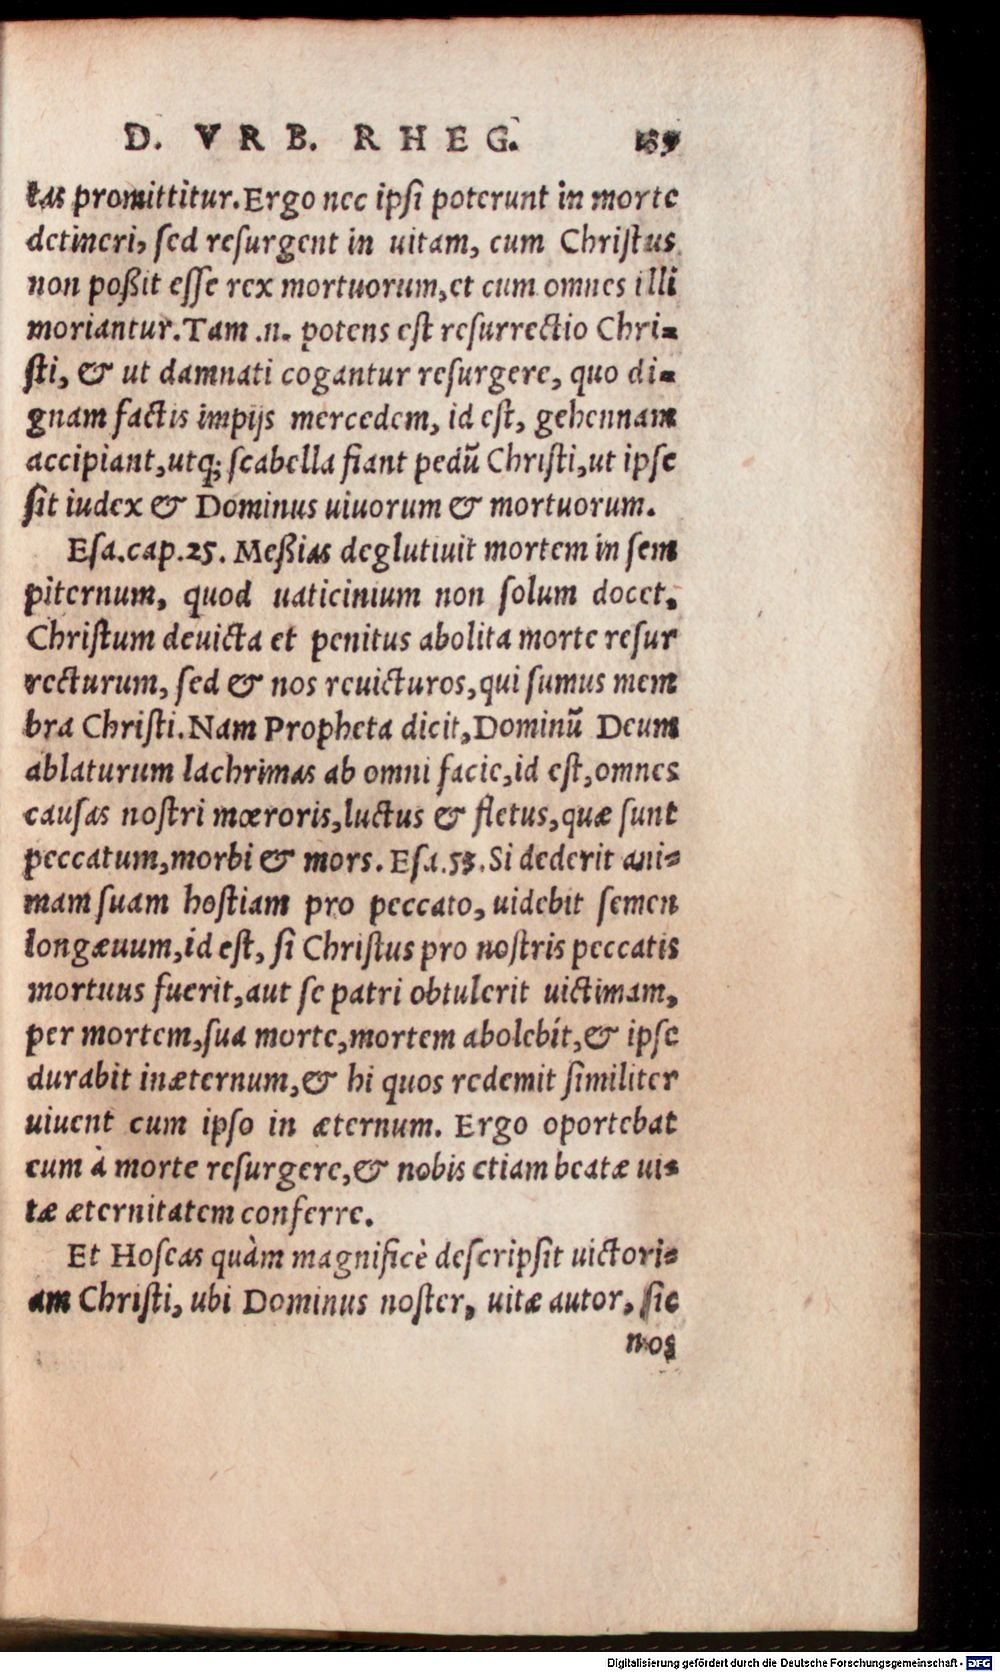 D. VRB. RHEG. 189
tas promittitur. Ergo nec ipsi poterunt in morte
detineri, sed resurgent in uitam, cum Christus
non poßit esse rex mortuorum, et cum omnes illi
moriantur. Tam .n. potens est resurrectio Chri-
sti, & ut damnati cogantur resurgere, quo di-
gnam factis impijs mercedem, id est, gehennam
accipiant, utq; scabella fiant pedũ Christi, ut ipse
sit iudex & Dominus uiuorum & mortuorum.
Esa. cap. 25. Meßias deglutiuit mortem in sem
piternum, quod uaticinium non solum docet,
Christum deuicta et penitus abolita morte resur
recturum, sed & nos reuicturos, qui sumus mem
bra Christi. Nam Propheta dicit, Dominũ Deum
ablaturum lachrimas ab omni facie, id est, omnes
causas nostri mœroris, luctus & fletus, quæ sunt
peccatum, morbi & mors. Esa. 53. Si dederit ani-
mam suam hostiam pro peccato, uidebit semen
longæuum, id est, si Christus pro nostris peccatis
mortuus fuerit, aut se patri obtulerit uictimam,
per mortem, sua morte, mortem abolebit, & ipse
durabit inæternum, & hi quos redemit similiter
uiuent cum ipso in æternum. Ergo oportebat
eum à morte resurgere, & nobis etiam beatæ ui-
tæ æternitatem conferre.
Et Hoseas quàm magnificè descripsit uictori-
am Christi, ubi Dominus noster, uitæ autor, sic
nos
Digitalisierung gefördert durch die Deutsche Forschungsgemeinschaft - DFG